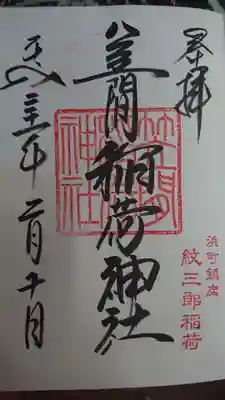 奉拝
浜町鎮座
紋三郎稲荷
笠間稲荷神社
笠間
神社
平成三十一年二月十日